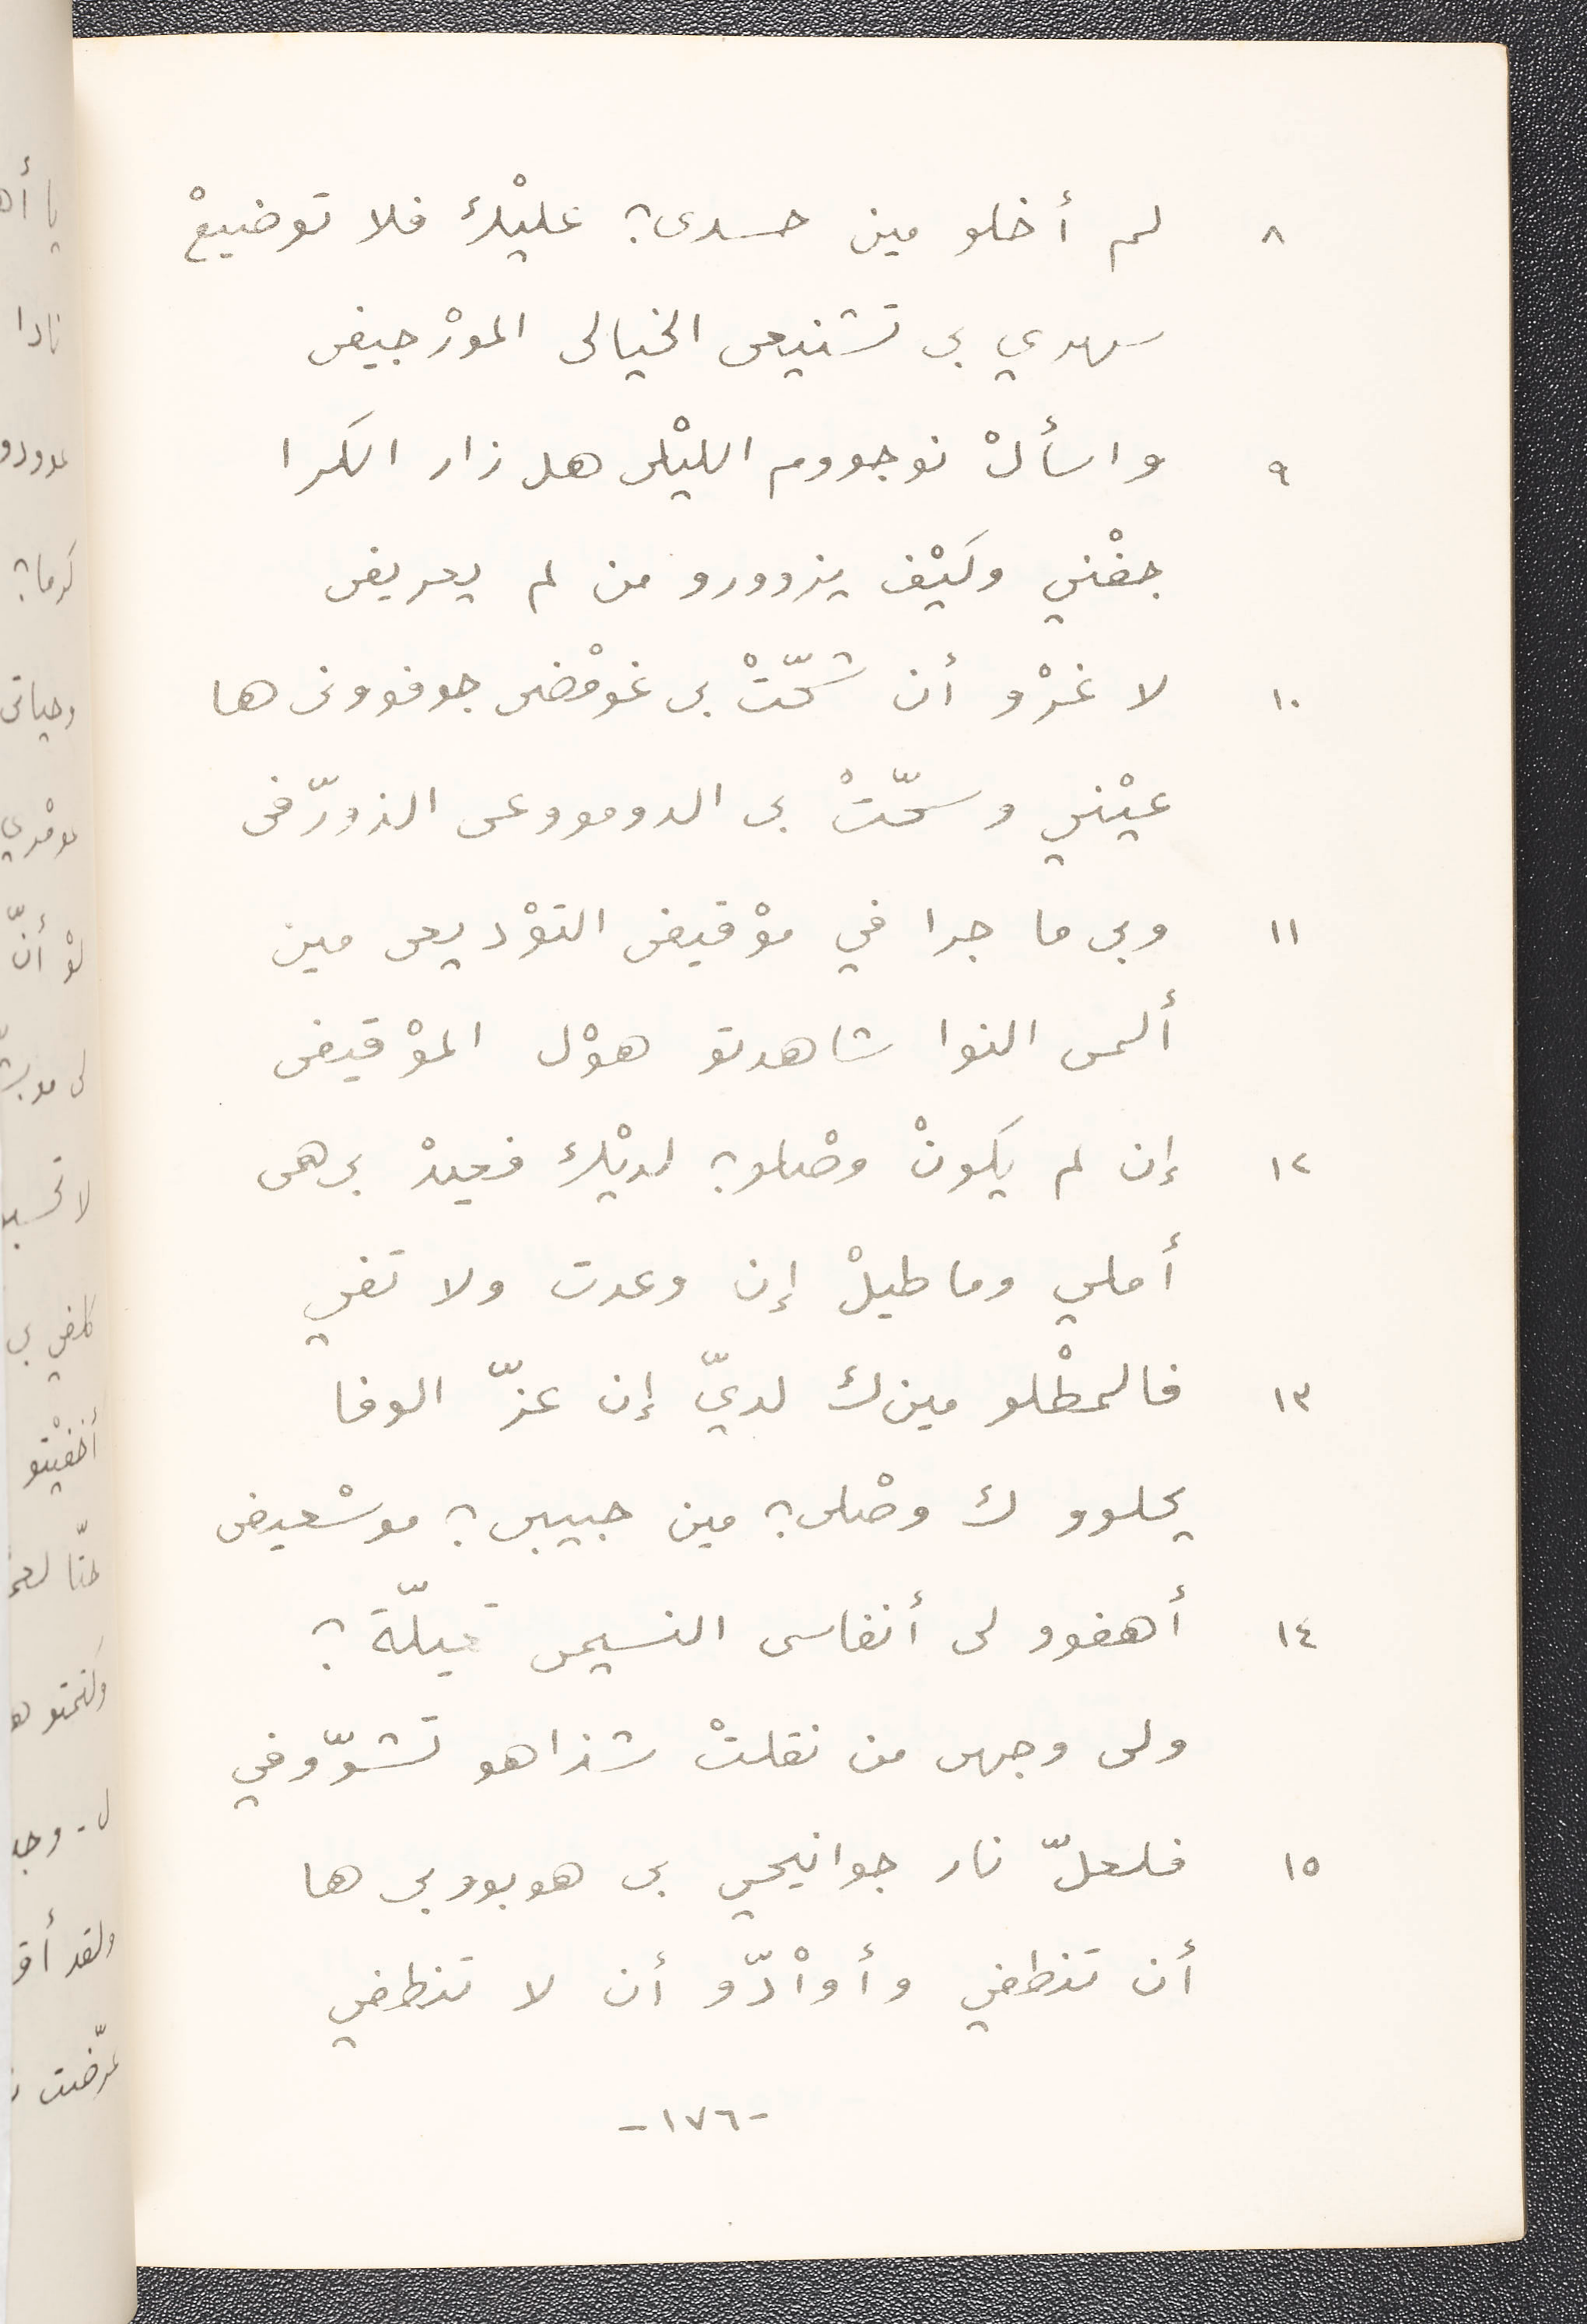 ٨ لم أخلو مين حسدى؟ عليْك فلا توضيعْ
سهدي بى تشنيعى الخيالى المورْجيفى
٩ واسألْ نوجووم الليْلى هل زار الكرا
جفْني وكيْف يزوورو من لم يعريفى
١٠ لا غرْو أن شحّتْ بى غومْضى جوفوونى ها
عيْني وسحّتْ بى الدومووعى الذورّفى
١١ وبى ما جرا في موْقيفى التوْديعى مين
ألمى النوا شاهدتو هوْل الموْقيفى
١٢ إن لم يكونْ وصْلو؟ لديْك فعيدْ بى هى
أملي وماطيلْ إن وعدت ولا تفي
١٣ فالمطْلو مين ك لديّ إن عزّ الوفا
يحلوو ك وصْلى؟ مين حبيبى؟ موسْعيفى
١٤ أهفوو لى أنفاسى النسيمى تعيلّة؟
ولى وجهى من نقلتْ شذاهو تشوّوفي
١٥ فلعلّ نار جوانيحي بى هوبووبى ها
أن تنطفي وأواْدّو أن لا تنطفي
-١٧٦-